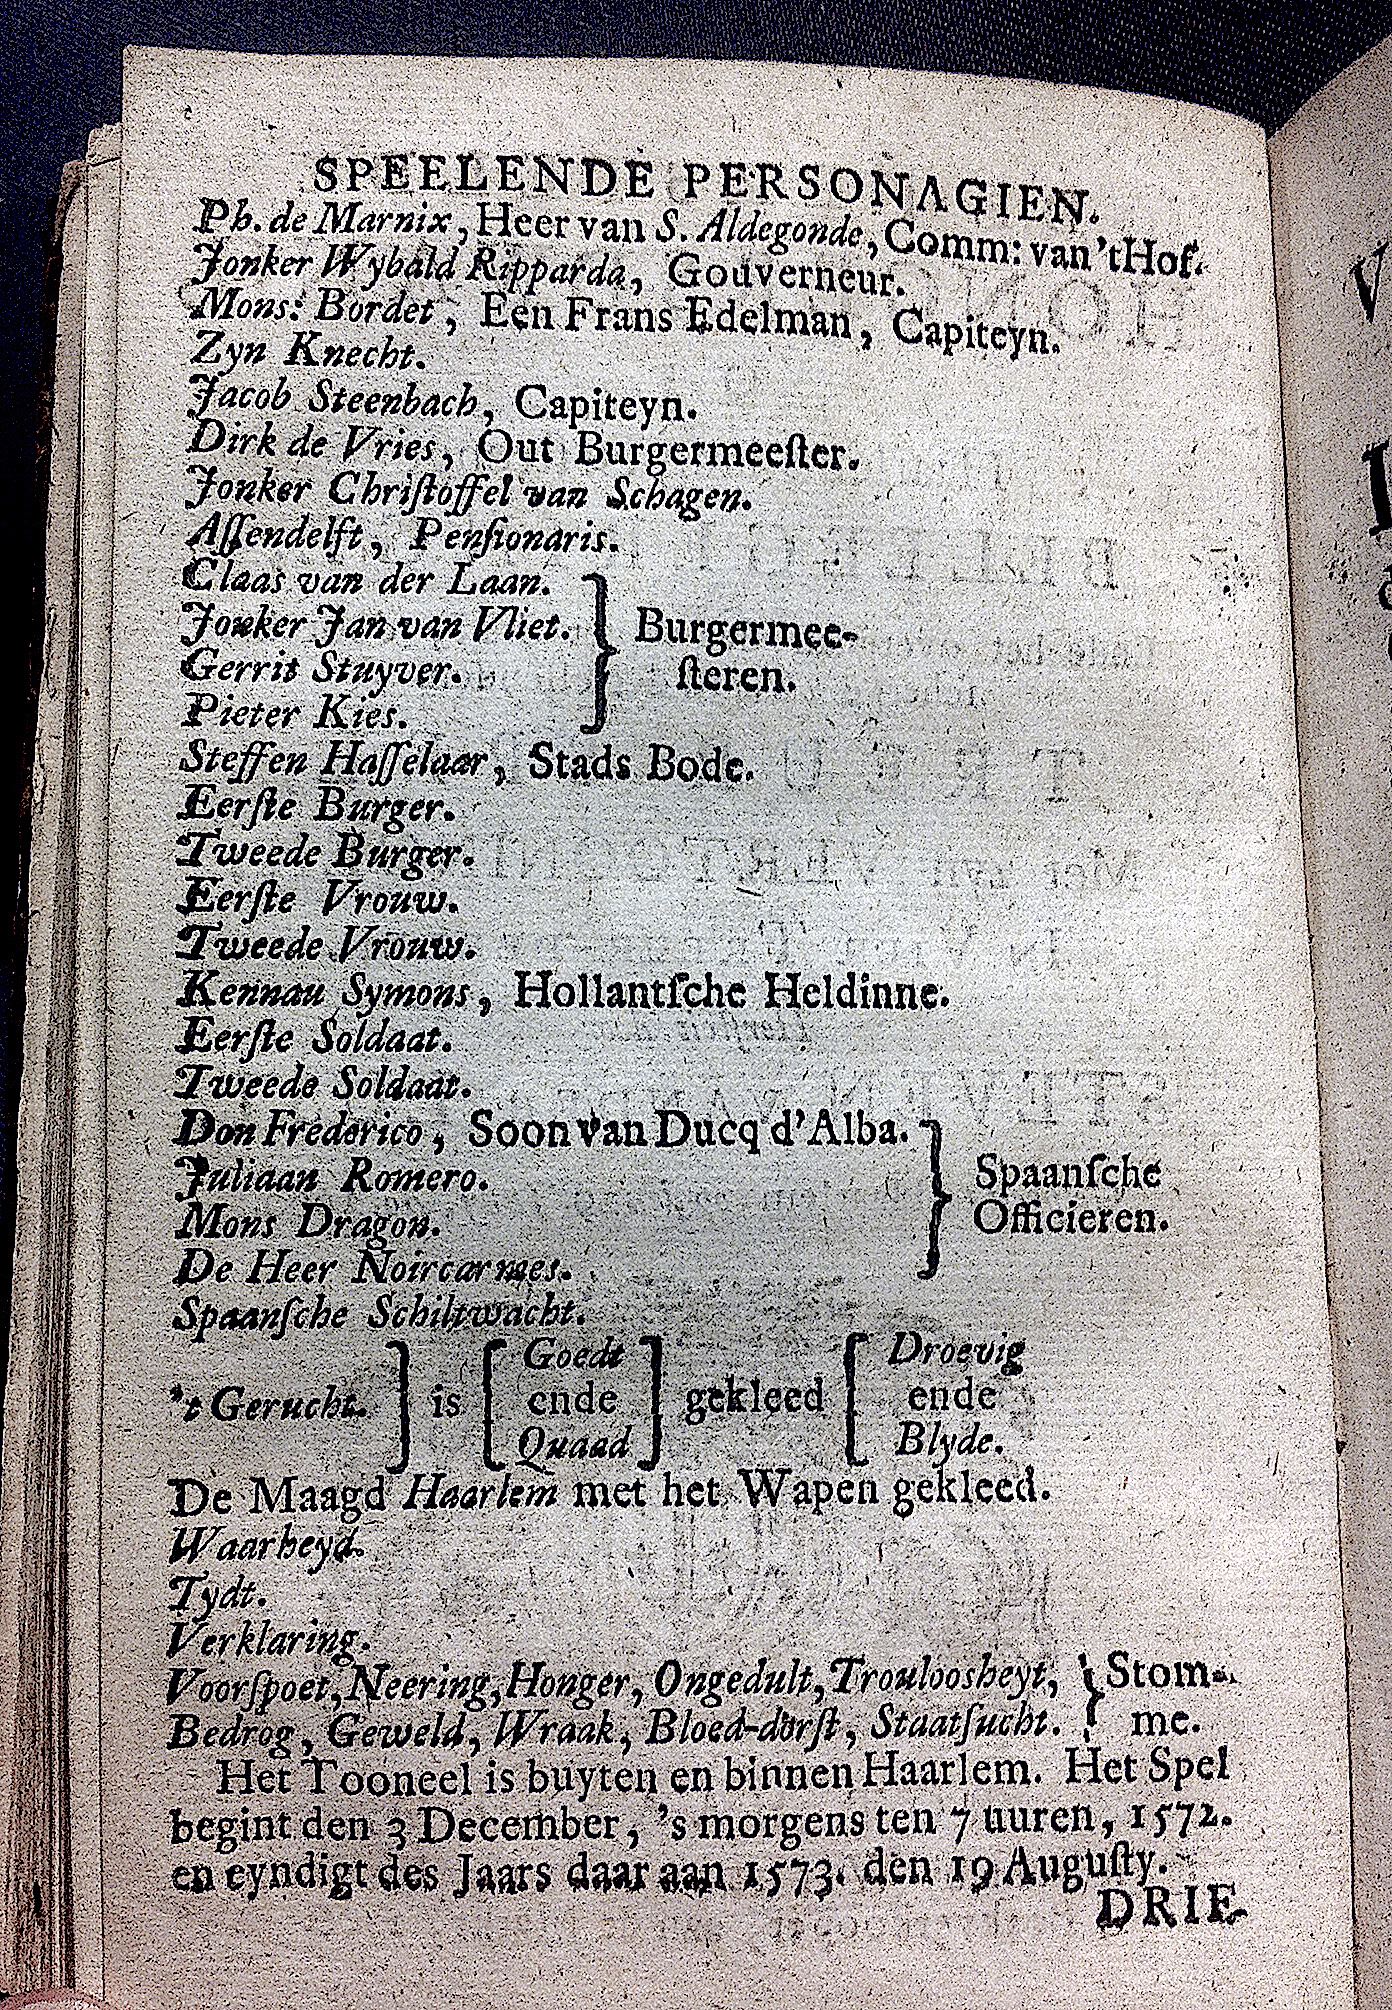 SPEELENDE PERSONAGIEN.
Ph. de Marnix, Heer van S. Aldegonde, Comm: van 't Hof.
Jonker Wybald Ripparda, Gouverneur.
Mons: Bordet, Een Frans Edelman, Capiteyn.
Zyn Knecht.
Jacob Steenbach, Capiteyn.
Dirk de Vries, Out Burgermeeſter.
Jonker Chriſtoffel van Schagen.
Aſſendelft, Penſionaris.
Claas van der Laan.
Jonker Jan van Vliet. } Burgermee-
Gerrit Stuyver. ſteren.
Pieter Kies.
Steffen Haſſelaar, Stads Bode.
Eerſte Burger.
Tweede Burger.
Eerſte Vrouw.
Tweede Vrouw.
Kennau Symons, Hollantſche Heldinne.
Eerſte Soldaat.
Tweede Soldaat.
Don Frederico, Soon van Ducq d'Alba.
Juliaan Romero. } Spaanſche
Mons Dragon. Officieren.
De Heer Noircarmes.
Spaanſche Schiltwacht.
Goedt Droevig
't Gerucht. } is { ende } gekleed { ende
Quaad Blyde.
De Maagd Haarlem met het Wapen gekleed.
Waarheyd.
Tydt.
Verklaring.
Voorſpoet, Neering, Honger, Ongedult, Trouloosheyt, } Stom-
Bedrog, Geweld, Wraak, Bloed-dorſt, Staatſucht. me.
Het Tooneel is buyten en binnen Haarlem. Het Spel
begint den 3 December, 's morgens ten 7 uuren, 1572.
en eyndigt des Jaars daar aan 1573. den 19 Auguſty.
DRIE-